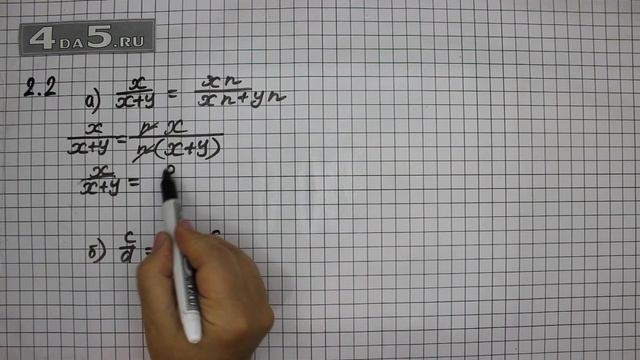 4DA5.RU
2.2
а) x/(x+y) = xn/(xn+yn)
x/(x+y) = n x/(n(x+y))
x/(x+y) =
б) c/d =